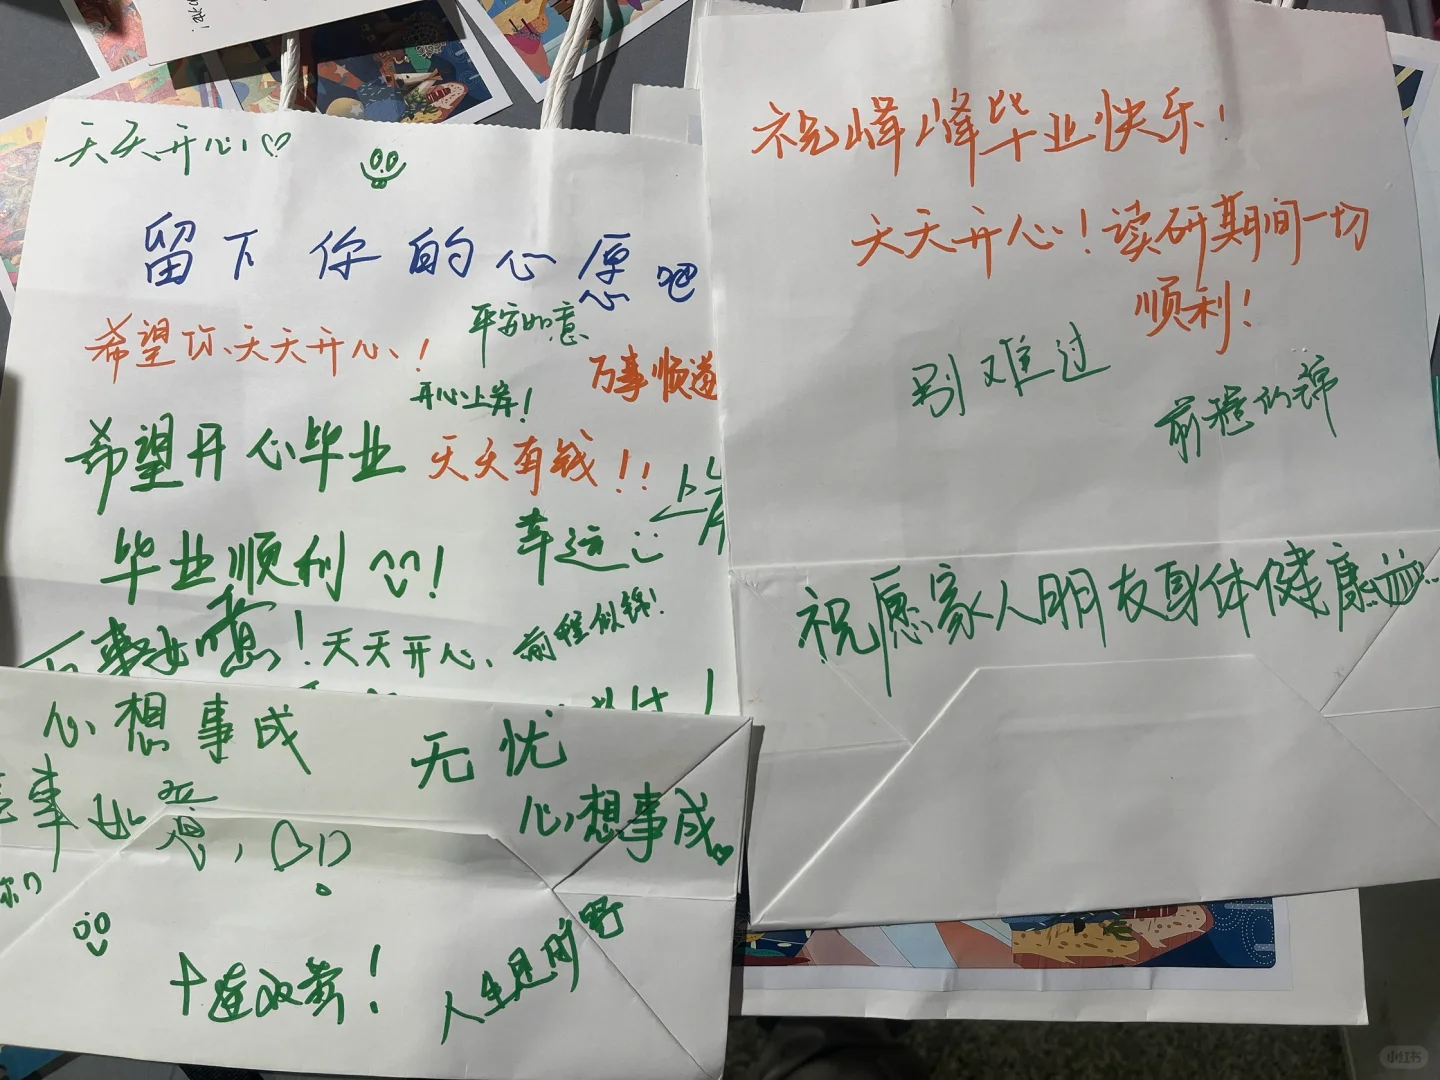 天天开心!
留下你的心愿吧
希望你天天开心!
平安如意
万事顺遂
开心上岸!
希望开心毕业
天天有钱!!
上岸
毕业顺利!
幸运
万事如意!
天天开心、
前程似锦!
心想事成
无忧
事如意,
心想事成
人生是旷野
祝峰峰毕业快乐!
天天开心!读研期间一切
顺利!
别难过
前程似锦
祝愿家人朋友身体健康
小红书